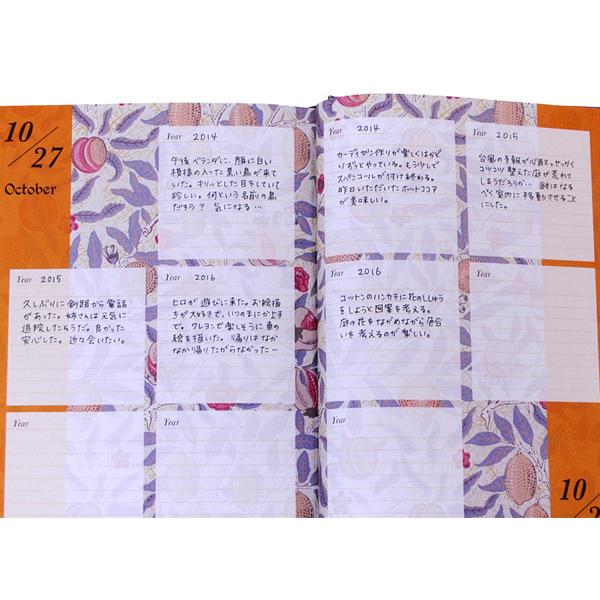 10/27
October
Year 2014
午後ベランダに、顔に白い
模様の入った黒い鳥が来て
いた。キリッとした目をしていて
珍しい。何という名前の鳥
だろう? 気になる…
Year 2015
久しぶりに釧路から電話
があった。姉さんは元気に
退院したそうだ。良かった
安心した。近々会いたい。
Year 2016
ヒロが遊びに来た。お絵描
きが大好きで、いつのまにか上手
で。クレヨンで楽しそうに車の
絵を描いた。帰りはなか
なか帰りたがらなかったー
Year
Year
Year 2014
カーディガン作りが楽しくはかど
りずっとやっている。もう少しで
スパンコールが付け終わる。
昨日いただいたホットココア
が美味しい。
Year 2015
台風の予報が心配で。せっかく
コツコツ整えた庭が荒れて
しまうだろうか… 鉢はなる
べく室内に移動させること
にした。
Year 2016
コットンのハンカチに花のししゅう
をしようと図案を考える。
庭の花をながめながら色合
いを考えるのが楽しい。
Year
Year
Year
10/